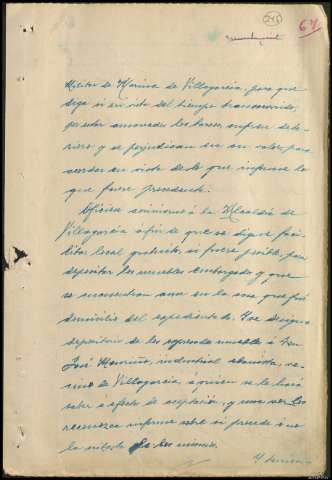 245
67
Militar de Marina de Villagarcía, para que
diga si en vista del tiempo transcurrido,
por estar amarradas las bases, sufren dete-
rioro y se perjudican en su valor, para
acordar en vista de lo que informe lo
que fuere procedente.
Ofíciese asimismo á la Alcaldía de
Villagarcía á fin de que se digne faci-
litar local gratuito, si fuere posible, para
depositar los muebles embargados y que
se encuentran aun en la casa que fué
domicilio del expedientado. Y se designa
depositario de los expresados muebles á Don
José Mouriño, industrial ebanista, ve-
cino de Villagarcía á quien se le hará
saber á efectos de aceptación, y una vez los
reconozca informe sobre si procede ó no
la subasta de los mismos.